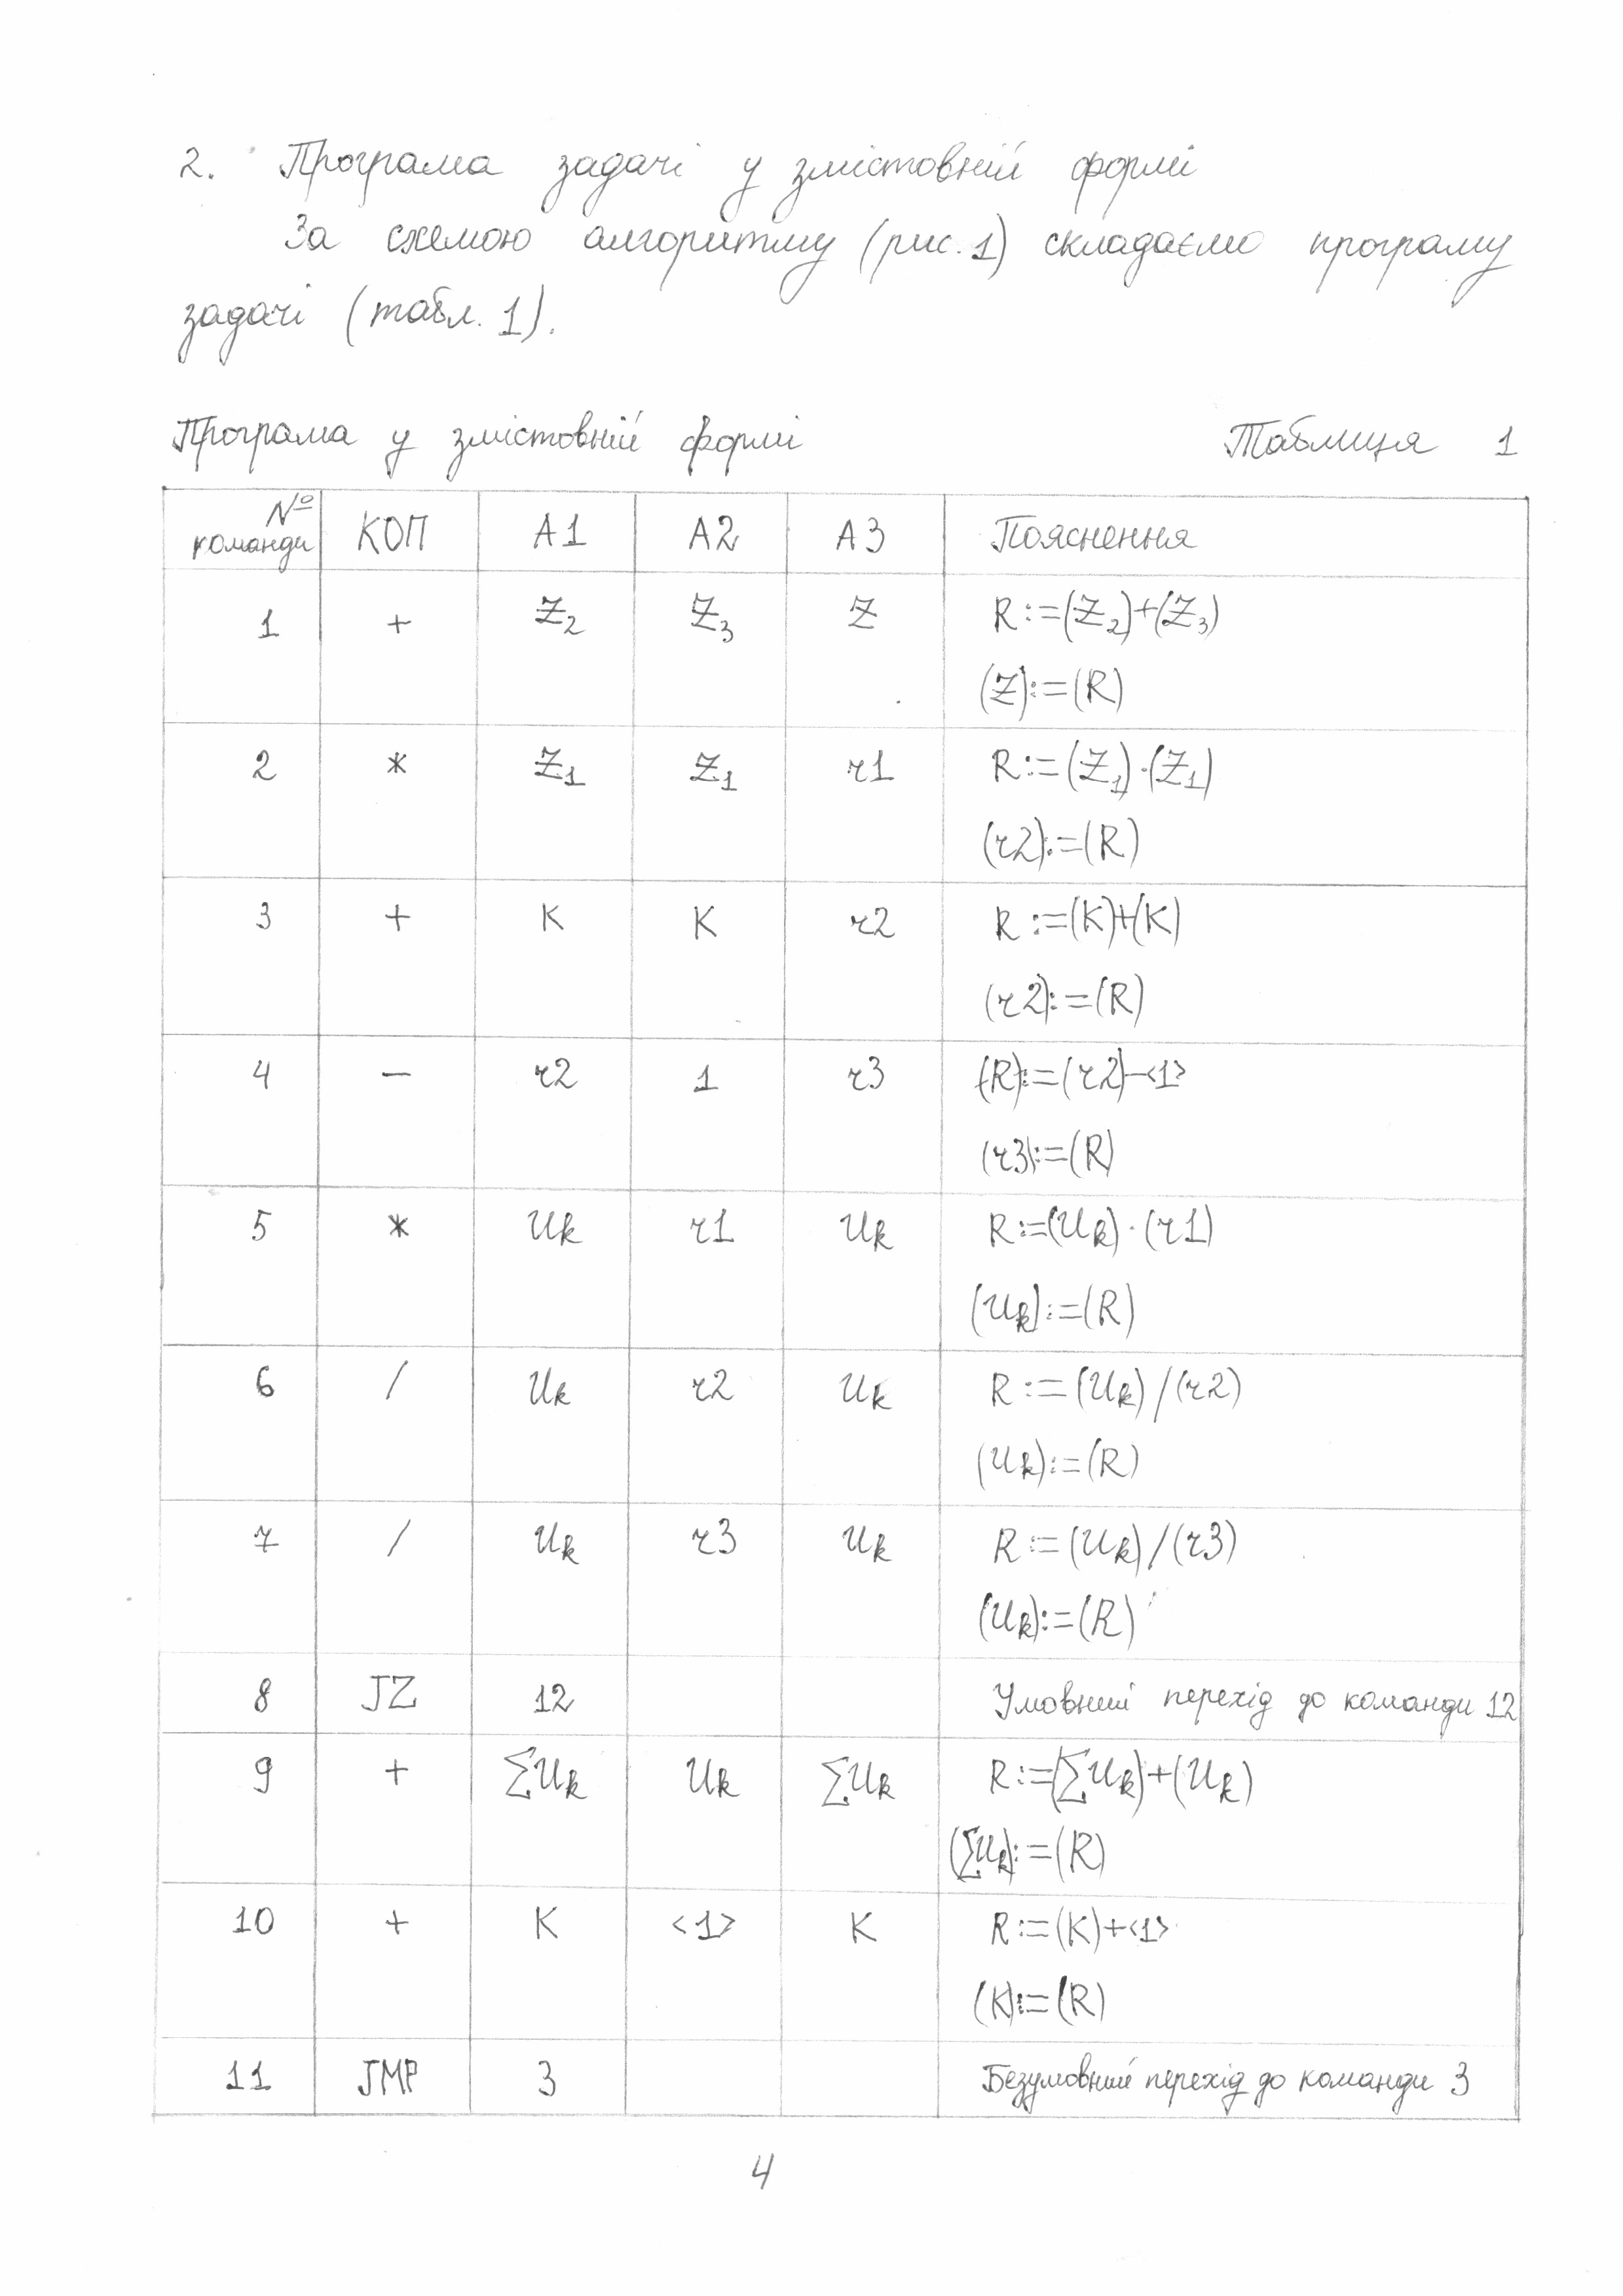 2. Програма задачі у змістовній формі
За схемою алгоритму (рис. 1) складаємо програму
задачі (табл. 1).
Програма у змістовній формі Таблиця 1
№ команди КОП А1 А2 А3 Пояснення
1 + Z₂ Z₃ Z R:=(Z₂)+(Z₃)
(Z):=(R)
2 * Z₁ Z₁ r1 R:=(Z₁)·(Z₁)
(r2):=(R)
3 + K K r2 R:=(K)+(K)
(r2):=(R)
4 − r2 1 r3 (R):=(r2)-<1>
(r3):=(R)
5 * Uk r1 Uk R:=(Uk)·(r1)
(Uk):=(R)
6 / Uk r2 Uk R:=(Uk)/(r2)
(Uk):=(R)
7 / Uk r3 Uk R:=(Uk)/(r3)
(Uk):=(R)
8 JZ 12 Умовний перехід до команди 12
9 + ΣUk Uk ΣUk R:=(ΣUk)+(Uk)
(ΣUk):=(R)
10 + K <1> K R:=(K)+<1>
(K):=(R)
11 JMP 3 Безумовний перехід до команди 3
4